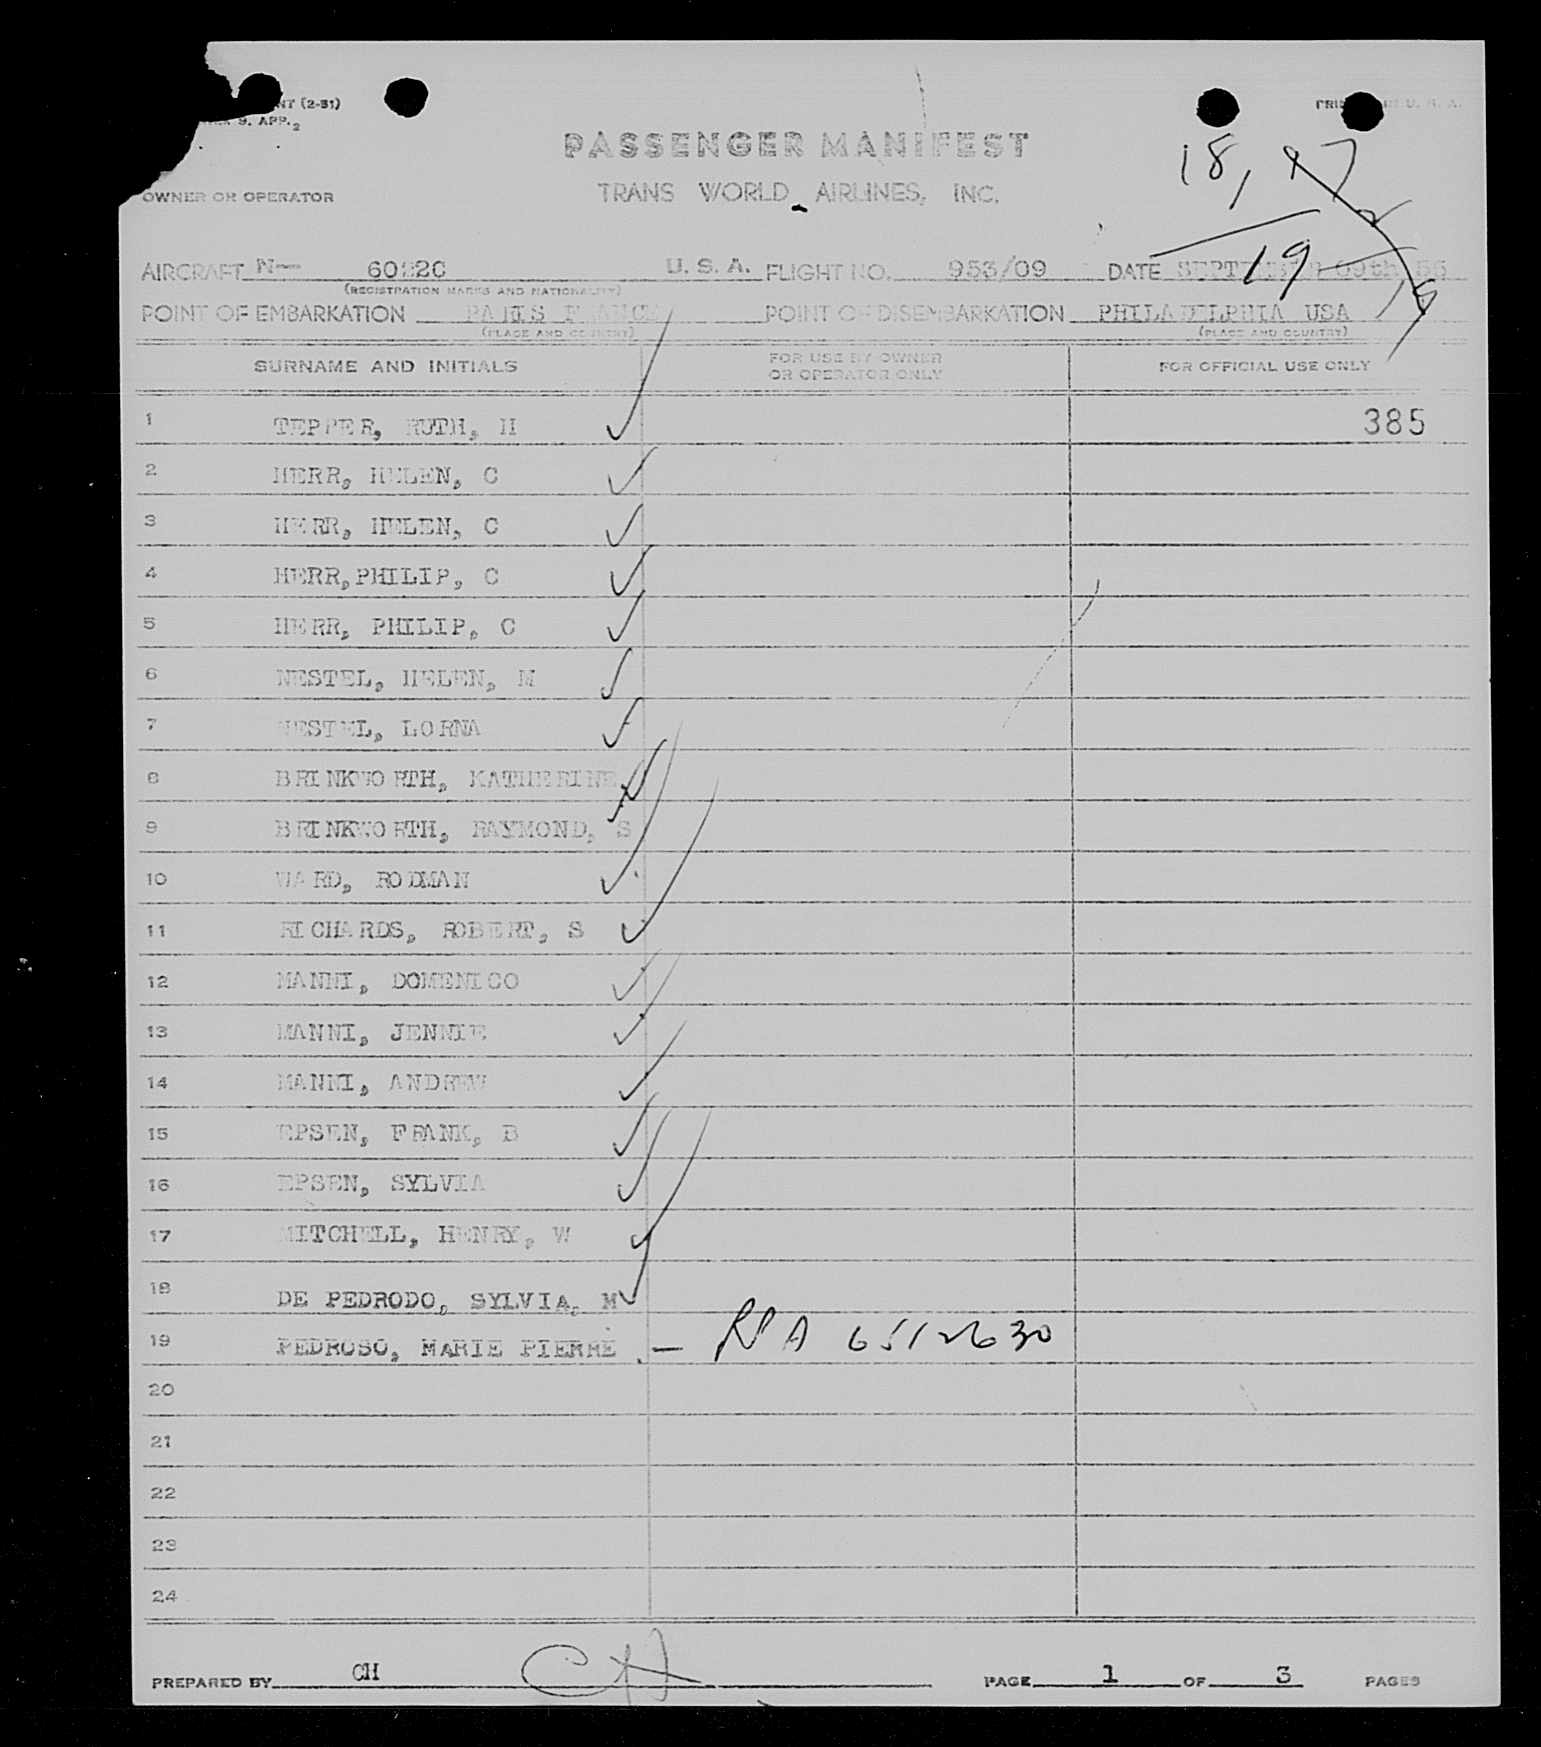 NT (2-51)
9. APP. 2
PASSENGER MANIFEST
18,
OWNER OR OPERATOR TRANS WORLD AIRLINES, INC.
19
AIRCRAFT N— 60220 U. S. A. FLIGHT NO. 953/09 DATE SEPTEMBER 09th 55
(REGISTRATION MARKS AND NATIONALITY)
POINT OF EMBARKATION PARIS FRANCE POINT OF DISEMBARKATION PHILADELPHIA USA
(PLACE AND COUNTRY) (PLACE AND COUNTRY)
SURNAME AND INITIALS FOR USE BY OWNER OR OPERATOR ONLY FOR OFFICIAL USE ONLY
1 TEPPER, RUTH, H 385
2 HERR, HELEN, C
3 HERR, HELEN, C
4 HERR,PHILIP, C
5 HERR, PHILIP, C
6 NESTEL, HELEN, M
7 NESTEL, LORNA
8 BRINKWORTH, KATHERINE
9 BRINKWORTH, RAYMOND, S
10 WARD, RODMAN
11 RICHARDS, ROBERT, S
12 MANNI, DOMENICO
13 MANNI, JENNIE
14 MANNI, ANDREW
15 EPSEN, FRANK, B
16 EPSEN, SYLVIA
17 MITCHELL, HENRY, W
18 DE PEDRODO, SYLVIA, M
19 PEDROSO, MARIE PIERRE — A 6512630
20
21
22
23
24
PREPARED BY CH CH PAGE 1 OF 3 PAGES